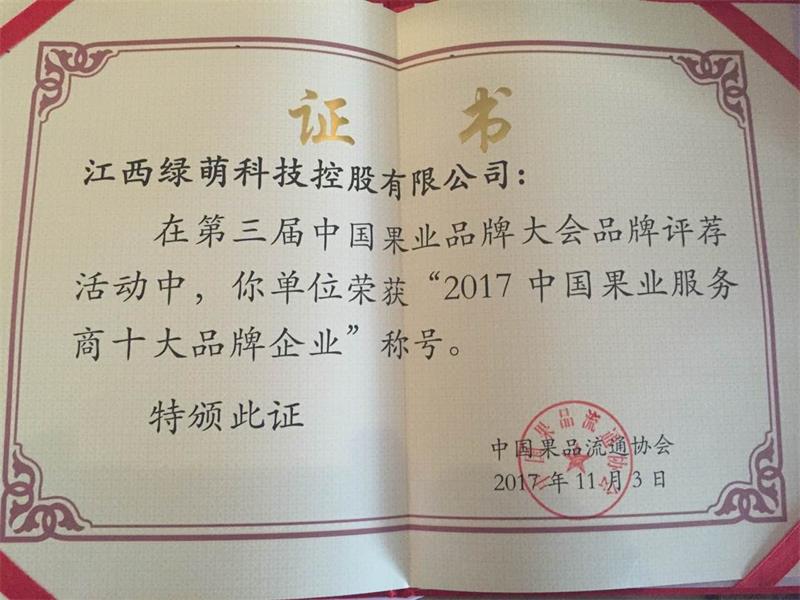 证书
江西绿萌科技控股有限公司：
在第三届中国果业品牌大会品牌评荐
活动中，你单位荣获“2017中国果业服务
商十大品牌企业”称号。
特颁此证
中国果品流通协会
中国果品流通协会
2017年11月3日